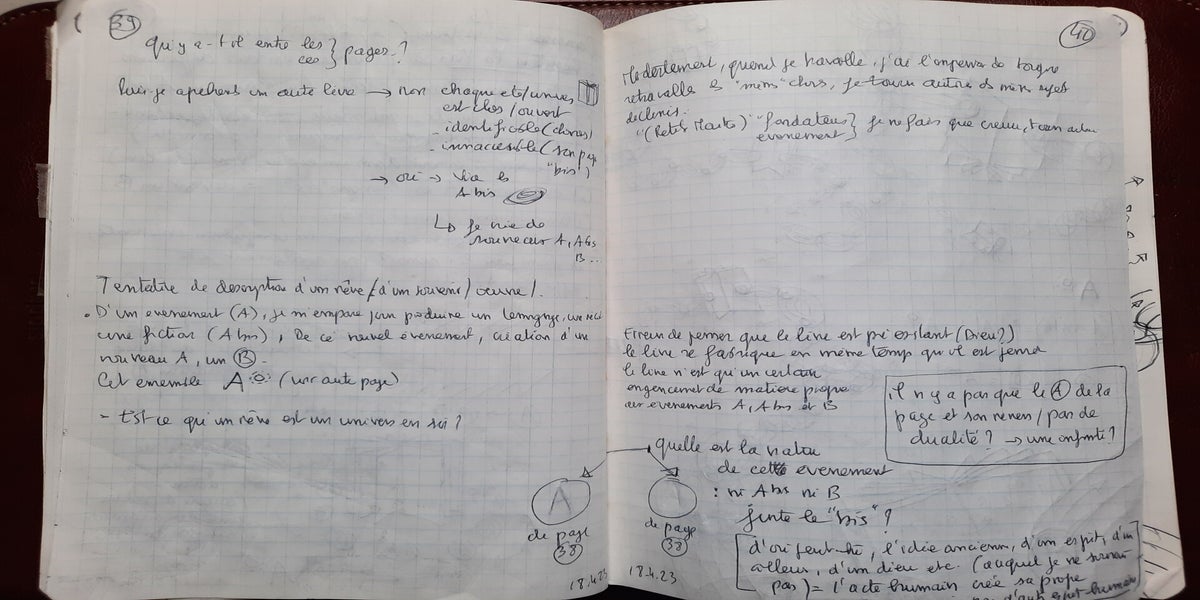 39
qu'y a-t-il entre les } pages ?
ces
Puis-je un autre livre → non chaque etc/univers
est clos / ouvert
- identifiable (choses)
- innaccessible (son page
"bis")
→ oui → via le
A bis
↳ je de
nouveaux A, A bis
B...
Tentative de description d'un rêve / d'un souvenir / oeuvre /.
. D'un evenement (A), je m'empare pour produire un langage, un recit
une fiction (A bis), De ce nouvel évenement, création d'un
nouveau A, un B.
Cet ensemble A (voir autre page)
- Est ce qu'un rêve est un univers en soi ?
A
de page
38
18.4.23
40
quand je travaille, j'ai l'impression de
retravailler les "mêm" choses, je tourne autour de mêmes sujets
declinés.
"(Petits " fondateurs } je ne fais que creuser, tourner autour
evenement }
Erreur de penser que le livre est pré existant (Dieu ?)
le livre se fabrique en même temps qu'il est pensé
le livre n'est qu'un certain
engencement de matière propre
aux evenements A, A bis et B
il n'y a pas que le A de la
page et son revers / pas de
dualité ? → une infinité ?
quelle est la nature
de cette evenement
: ni A bis ni B
juste le "bis" ?
de page
38
18.4.23
d'où peut-être, l'idée ancienne, d'un esprit, d'un
ailleurs, d'un dieu etc. (auquel je ne
pas) = l'acte humain crée sa propre